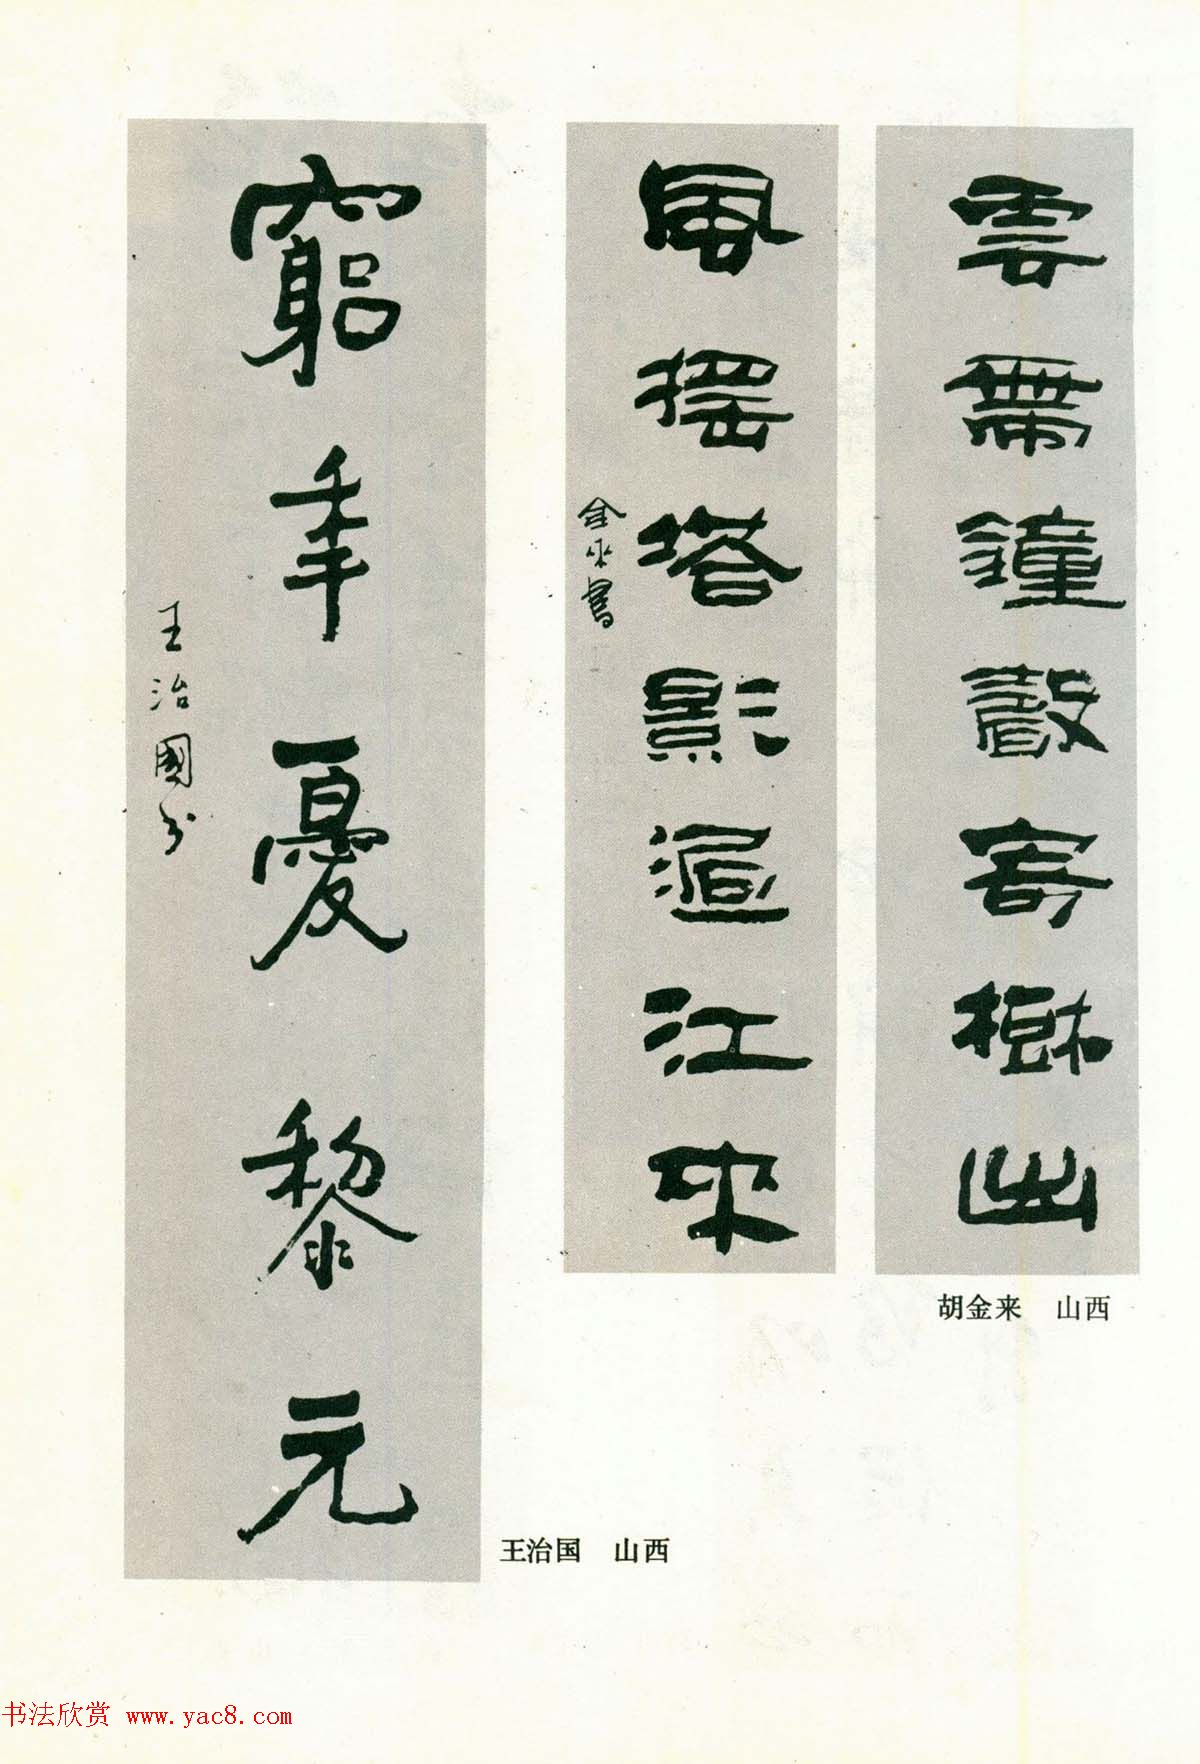 雲帶鐘聲穿樹出
風搖塔影過江來
金來書
胡金来 山西
竆年憂黎元
王治國书
王治国 山西
书法欣赏 www.yac8.com